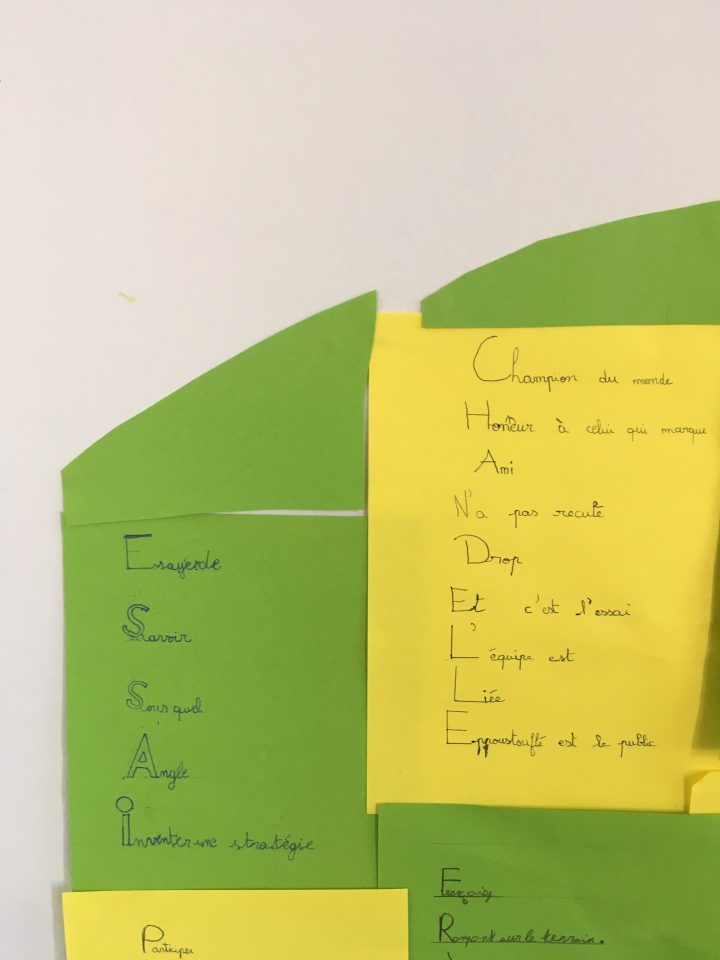 Champion du monde
Honneur à celui qui marque
Ami
N'a pas reculé
Drop
Et c'est l'essai
L'équipe est
Liée
Eppoustouflé est le public
Essayerde
Savoir
Sous quel
Angle
inventer une stratégie
Participer
François
Rompont sur le terrain.